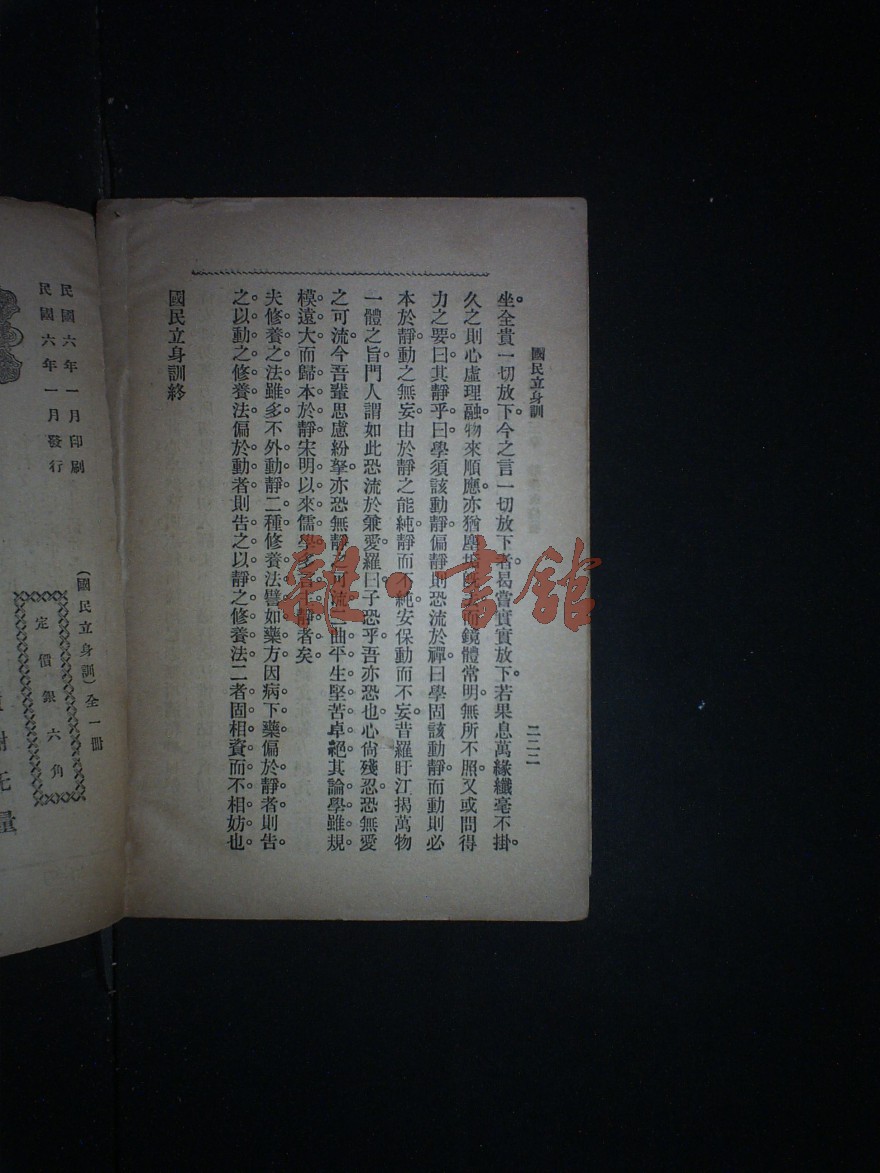 國民立身訓
二二二
坐全貴一切放下今之言一切放下者曷嘗實實放下若果息萬緣纖毫不掛
久之則心虛理融物來順應亦猶塵垢既去而鏡體常明無所不照又或問得
力之要曰其靜乎曰學須該動靜偏靜則恐流於禪曰學固該動靜而動則必
本於靜動之無妄由於靜之能純靜而不純安保動而不妄昔羅盱江揭萬物
一體之旨門人謂如此恐流於兼愛羅曰子恐乎吾亦恐也心尙殘忍恐無愛
之可流今吾輩思慮紛拏亦恐無靜之可流二曲平生堅苦卓絕其論學雖規
模遠大而歸本於靜宋明以來儒學多言主靜者矣
夫修養之法雖多不外動靜二種修養法譬如藥方因病下藥偏於靜者則告
之以動之修養法偏於動者則告之以靜之修養法二者固相資而不相妨也
國民立身訓終
雜·書館
民國六年一月印刷
民國六年一月發行
(國民立身訓)全一冊
定價銀六角
量